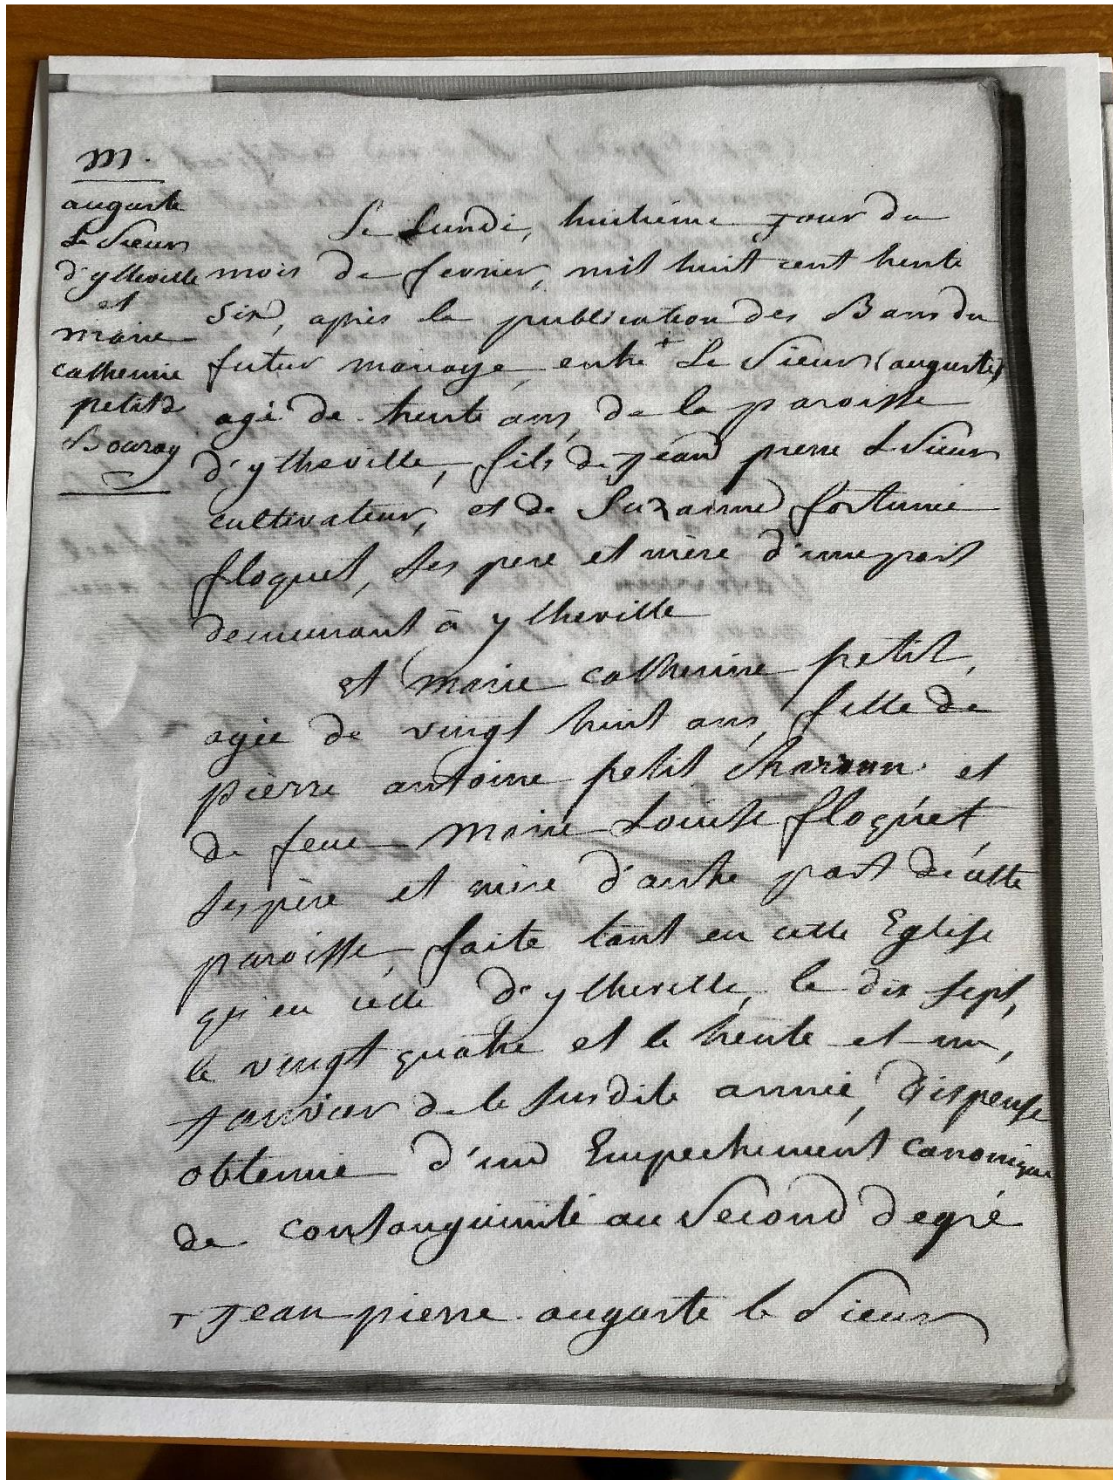 m.
auguste
Le Sieur
d'ytheville
et
marie
catherine
petit d
Bouray
Le Lundi, huitieme jour du
mois de fevrier, mil huit cent trente
six, après la publication des Bans du
futur mariage, entre + Le Sieur (auguste)
agé de trente ans, de la paroisse
d'ytheville, fils de jean pierre Le Sieur
cultivateur, et de Suzanne fortunée
floquet, ses pere et mère d'une part
demeurant à ytheville
et marie catherine petit,
agée de vingt huit ans, fille de
pierre antoine petit charron et
de feue marie Louise floquet
ses père et mère d'autre part de cette
paroisse, faite tant en cette Eglise
qu'en celle d'ytheville, le dix sept,
le vingt quatre et le trente et un,
janvier de la susdite année, Dispense
obtenue d'un Empechement canonique
de consanguinité au Second degré
+ jean pierre auguste le Sieur